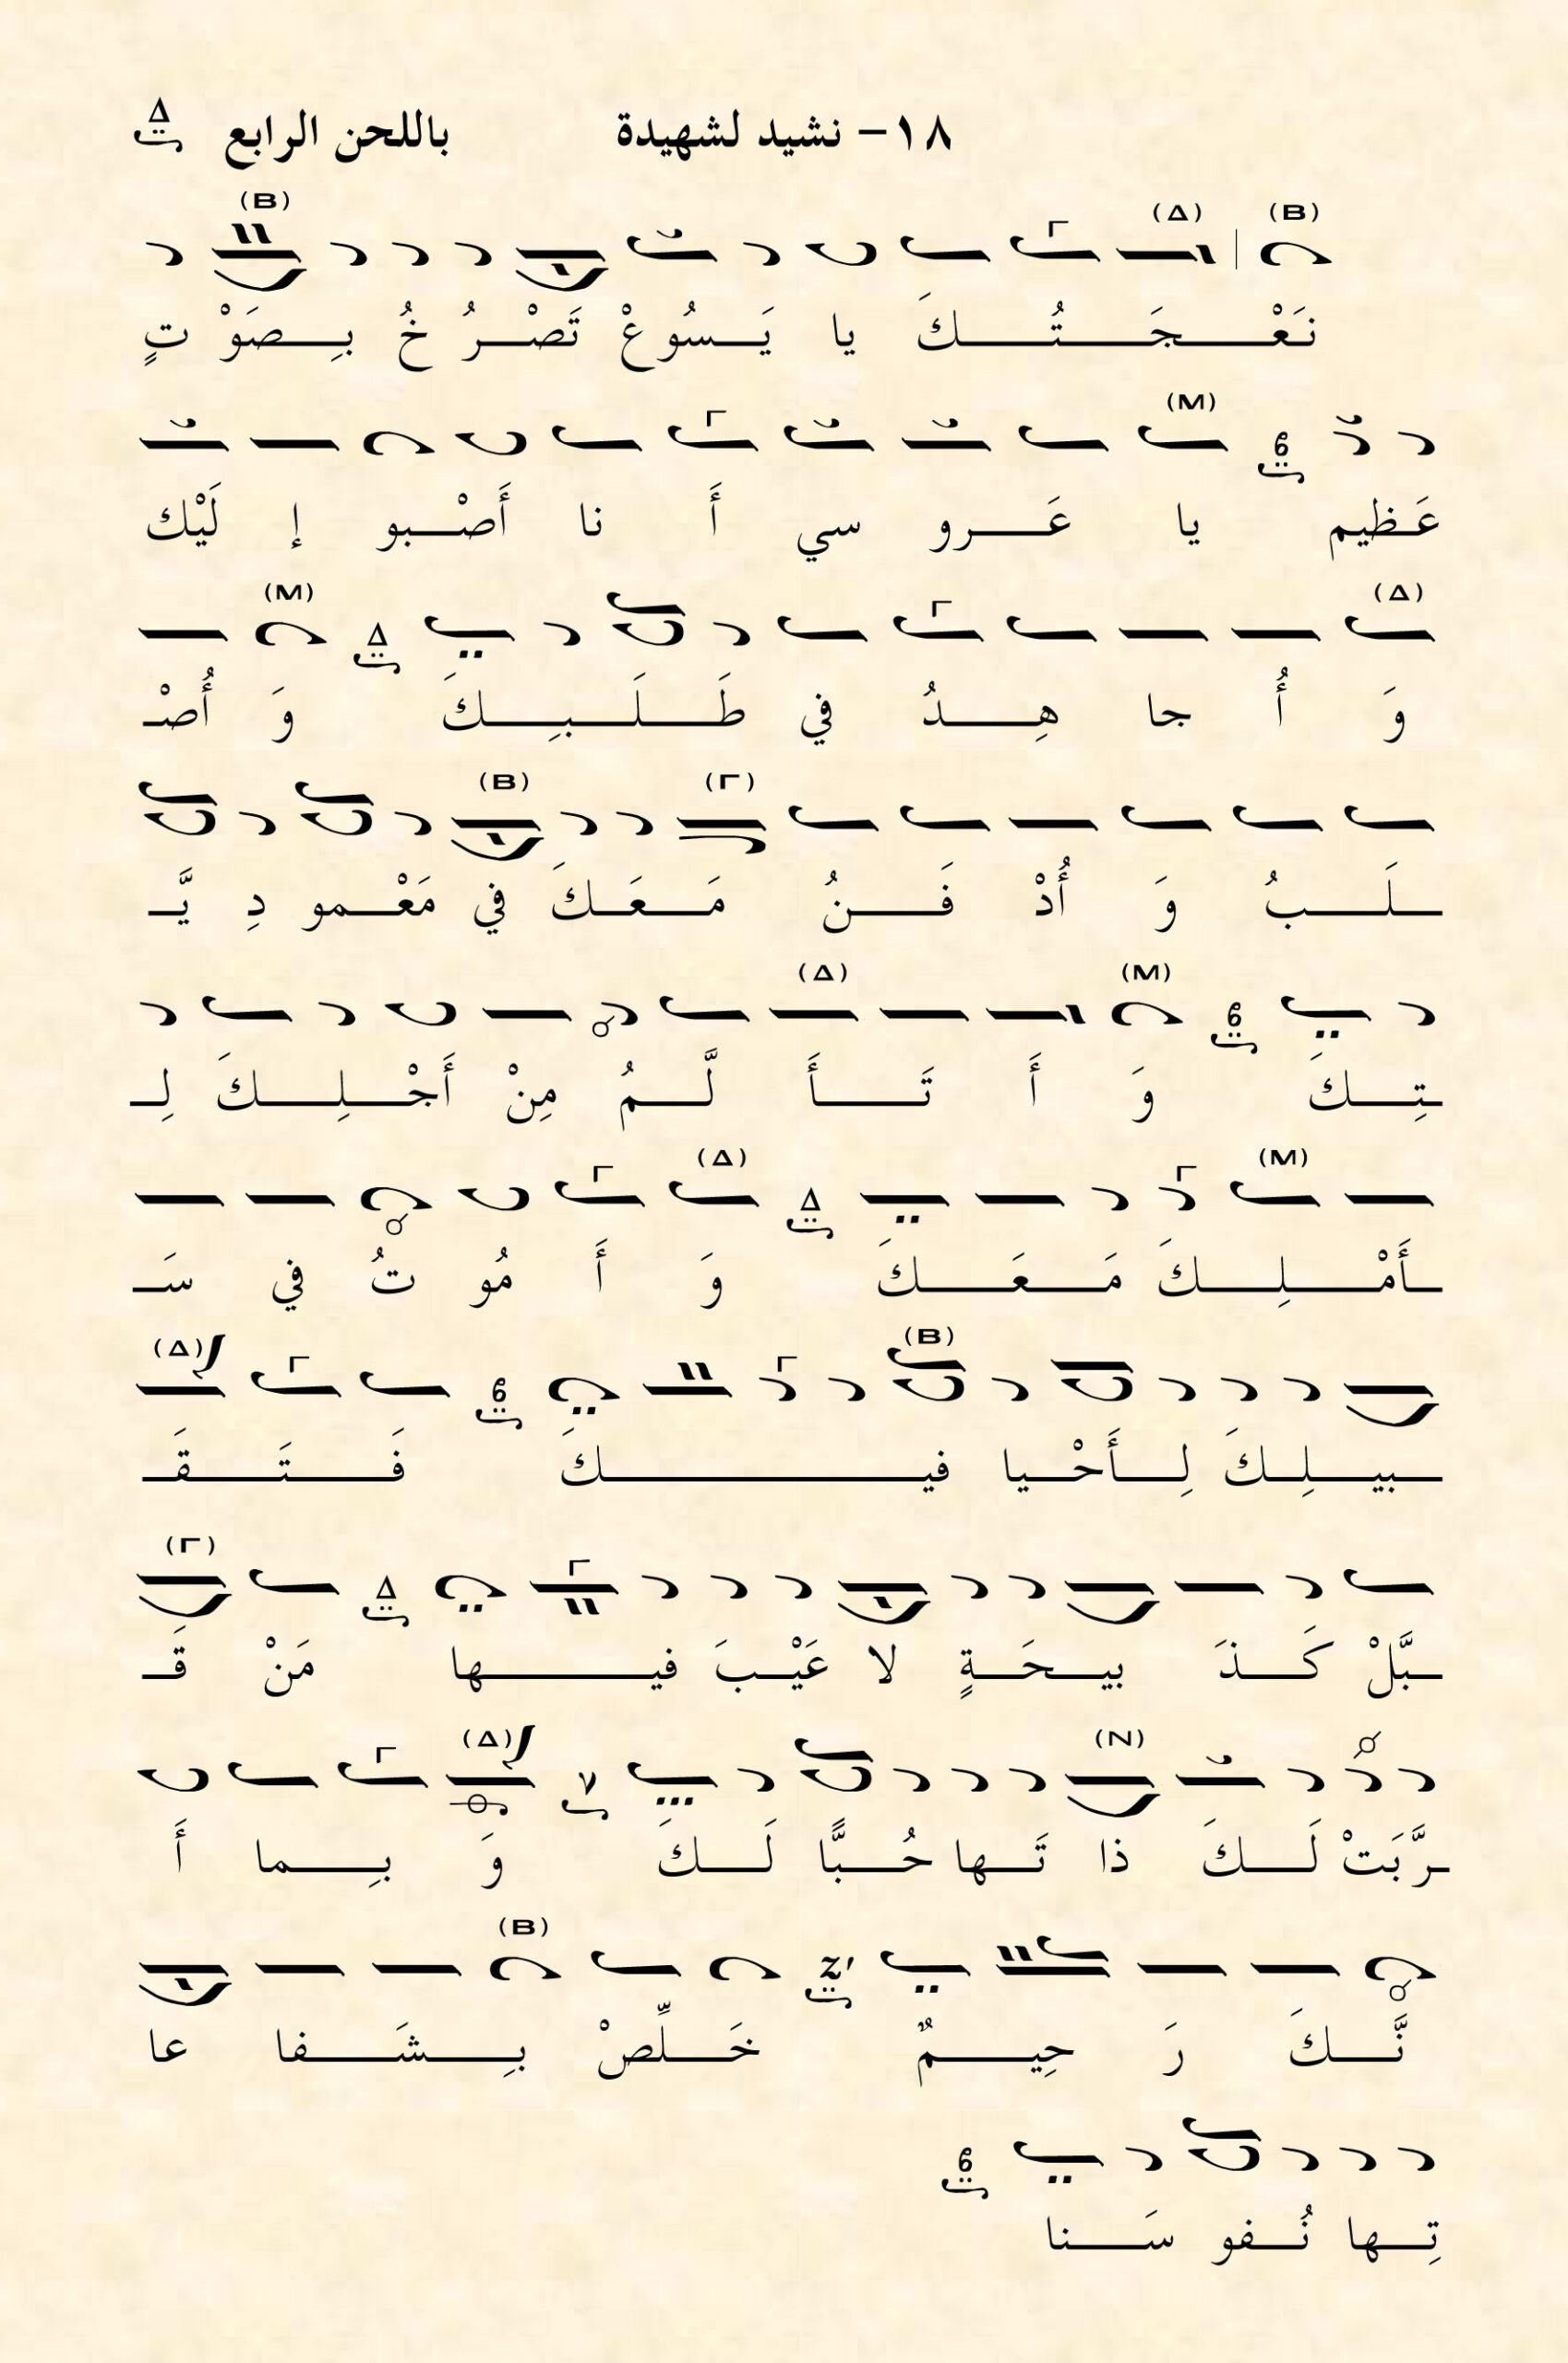 ١٨- نشيد لشهيدة باللحن الرابع
(B) (Δ) (B)
نَعْـجَـتُـكَ يا يَـسُوعْ تَصْـرُ خُ بِـصَوْ تٍ
(M)
عَـظيم يا عَـرو سي أَ نا أَصْـبو إ لَيْك
(Δ) (M)
وَ أُ جا هِـدُ في طَـلَـبِـكَ وَ أُصْـ
(Γ) (B)
ـلَـبُ وَ أُدْ فَـنُ مَـعَـكَ في مَعْـمو دِ يَّـ
(M) (Δ)
ـتِـكَ وَ أَ تَـأَ لَّـمُ مِنْ أَجْـلِـكَ لِـ
(M) (Δ)
ـأَمْـلِـكَ مَـعَـكَ وَ أَ مُو تُ في سَـ
(B) (Δ)
ـبيـلِـكَ لِـأَحْـيا فيـكَ فَـتَـقَـ
(Γ)
ـبَّلْ كَـذَ بيـحَـةٍ لا عَيْـبَ فيـها مَنْ قَـ
(N) (Δ)
ـرَّبَتْ لَـكَ ذا تَـها حُـبًّا لَـكَ وَ بِـما أَ
(B)
نَّـكَ رَ حِيـمٌ خَـلِّصْ بِـشَـفا عا
تِـها نُـفو سَـنا